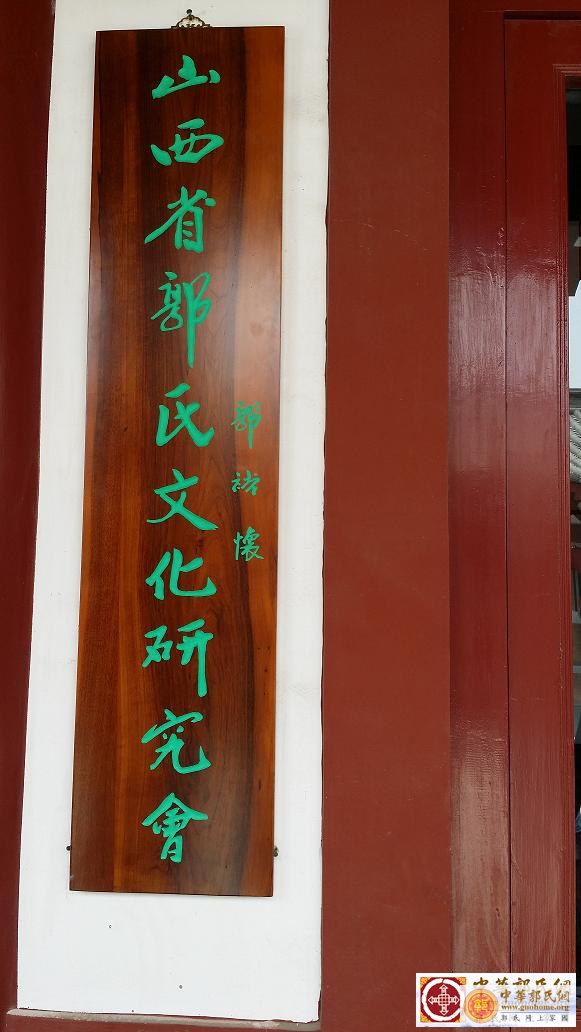 山西省郭氏文化研究會
郭裕懷
中華郭氏網
www.guohome.org
郭氏网上家園